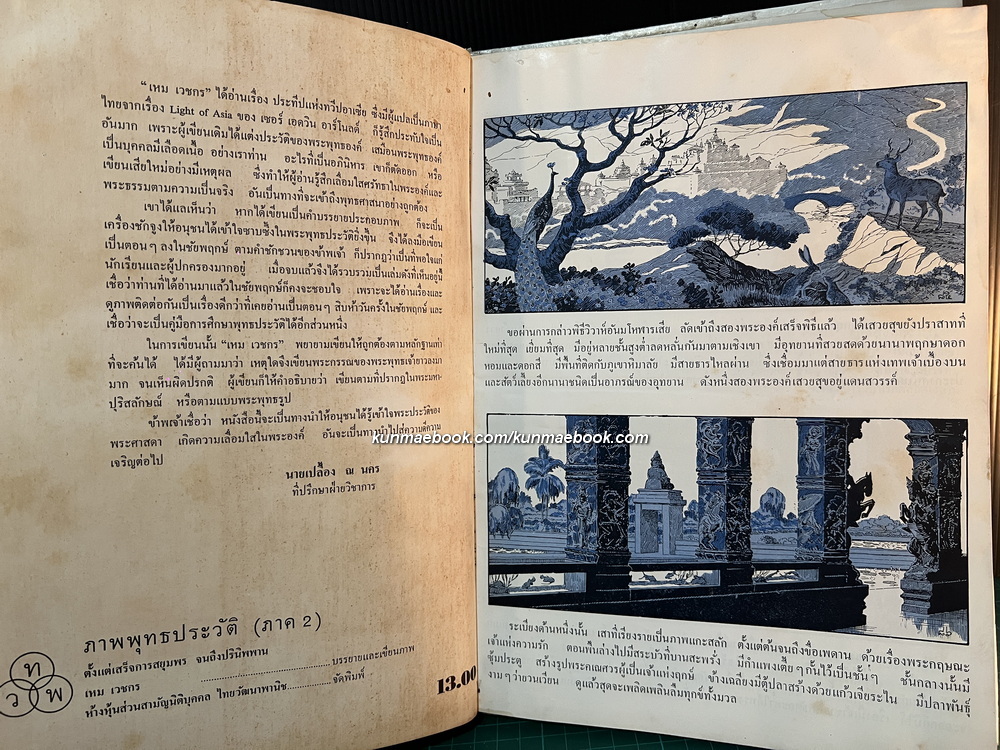 “เหม เวชกร” ได้อ่านเรื่อง ประทีปแห่งทวีปอาเซีย ซึ่งมีผู้แปลเป็นภาษา
ไทยจากเรื่อง Light of Asia ของ เซอร์ เอดวิน อาร์โนลด์ ก็รู้สึกประทับใจเป็น
อันมาก เพราะผู้เขียนเดิมได้แต่งประวัติของพระพุทธองค์ เสมือนพระพุทธองค์
เป็นบุคคลมีเลือดเนื้อ อย่างเราท่าน อะไรที่เป็นอภินิหาร เขาก็ตัดออก หรือ
เขียนเสียใหม่อย่างมีเหตุผล ซึ่งทำให้ผู้อ่านรู้สึกเลื่อมใสศรัทธาในพระองค์และ
พระธรรมตามความเป็นจริง อันเป็นทางที่จะเข้าถึงพุทธศาสนาอย่างถูกต้อง
เขาได้แลเห็นว่า หากได้เขียนเป็นคำบรรยายประกอบภาพ ก็จะเป็น
เครื่องชักจูงให้อนุชนได้เข้าใจซาบซึ้งในพระพุทธประวัติยิ่งขึ้น จึงได้ลงมือเขียน
เป็นตอนๆ ลงในชัยพฤกษ์ ตามคำชักชวนของข้าพเจ้า ก็ปรากฏว่าเป็นที่พอใจแก่
นักเรียนและผู้ปกครองมากอยู่ เมื่อจบแล้วจึงได้รวบรวมเป็นเล่มดังที่เห็นอยู่นี้
เชื่อว่าท่านที่ได้อ่านมาแล้วในชัยพฤกษ์ก็คงจะชอบใจ เพราะจะได้อ่านเรื่องและ
ดูภาพติดต่อกันเป็นเรื่องดีกว่าที่เคยอ่านเป็นตอนๆ สิบห้าวันครั้งในชัยพฤกษ์ และ
เชื่อว่าจะเป็นคู่มือการศึกษาพุทธประวัติได้อีกส่วนหนึ่ง
ในการเขียนนั้น “เหม เวชกร” พยายามเขียนให้ถูกต้องตามหลักฐานเท่า
ที่จะค้นได้ ได้มีผู้ถามมาว่า เหตุใดจึงเขียนพระกรรณของพระพุทธเจ้ายาวลงมา
มาก จนเห็นผิดปรกติ ผู้เขียนก็ให้คำอธิบายว่า เขียนตามที่ปรากฏในพระมหา-
ปุริสลักษณ์ หรือตามแบบพระพุทธรูป
ข้าพเจ้าเชื่อว่า หนังสือนี้จะเป็นทางนำให้อนุชนได้รู้เข้าใจพระประวัติของ
พระศาสดา เกิดความเลื่อมใสในพระองค์ อันจะเป็นทางนำไปสู่ความดีความ
เจริญต่อไป
นายเปลื้อง ณ นคร
ที่ปรึกษาฝ่ายวิชาการ
ภาพพุทธประวัติ (ภาค 2)
ตั้งแต่เสร็จการสยุมพร จนถึงปรินิพพาน
เหม เวชกร ........................ บรรยายและเขียนภาพ
ห้างหุ้นส่วนสามัญนิติบุคคล ไทยวัฒนาพานิช ............ จัดพิมพ์
ท
ว พ
13.00
ขอผ่านการกล่าวพิธีวิวาห์อันมโหฬารเสีย ลัดเข้าถึงสองพระองค์เสร็จพิธีแล้ว ได้เสวยสุขยังปราสาทที่
ใหม่ที่สุด เยี่ยมที่สุด มีอยู่หลายชั้นสูงต่ำลดหลั่นกันมาตามเชิงเขา มีอุทยานที่สวยสดด้วยนานาพฤกษาดอก
หอมและดอกสี มีพื้นที่ติดกับภูเขาหิมาลัย มีสายธารไหลผ่าน ซึ่งเชื่อมมาแต่สายธารแห่งเทพเจ้าเบื้องบน
และสัตว์เลี้ยงอีกนานาชนิดเป็นอาภรณ์ของอุทยาน ดังหนึ่งสองพระองค์เสวยสุขอยู่แดนสวรรค์
ระเบียงด้านหนึ่งนั้น เสาที่เรียงรายเป็นภาพแกะสลัก ตั้งแต่ต้นจนถึงขื่อเพดาน ด้วยเรื่องพระกฤษณะ
เจ้าแห่งความรัก ตอนพื้นล่างไปมีสระบัวที่บานสะพรั่ง มีกำแพงเตี้ยๆ กั้นไว้เป็นชั้นๆ ชั้นกลางนั้นมี
ซุ้มประตู สร้างรูปพระคเณศวรผู้เป็นเจ้าแห่งฤกษ์ ข้างเฉลียงมีตู้ปลาสร้างด้วยแก้วเจียระไน มีปลาพันธุ์
งามๆ ว่ายวนเวียน ดูแล้วสุดจะเพลิดเพลินลืมทุกข์ทั้งมวล
kunmaebook.com/kunmaebook.com